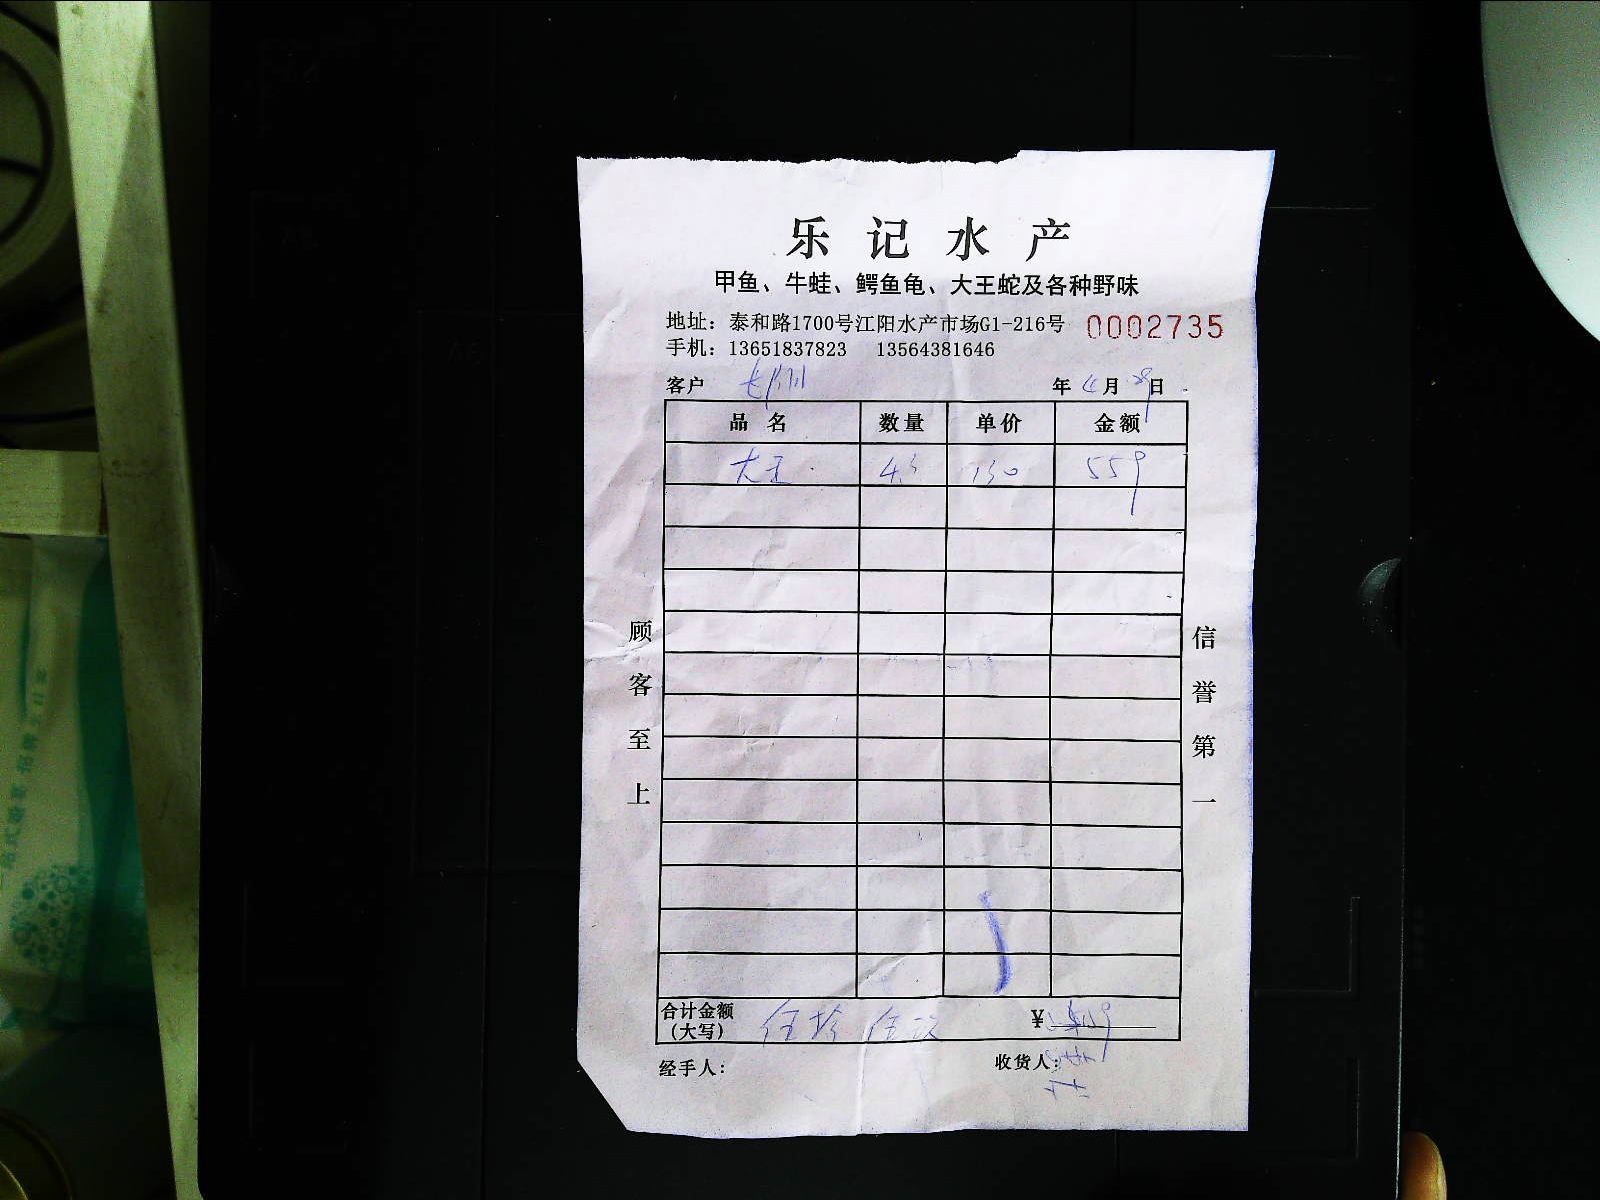 乐记水产
甲鱼、牛蛙、鳄鱼龟、大王蛇及各种野味
地址：泰和路1700号江阳水产市场G1-216号 0002735
手机：13651837823 13564381646
客户 年 4月 29日
品名 数量 单价 金额
大王 4.3 130 559
顾客至上
信誉第一
合计金额（大写） ¥
经手人： 收货人：